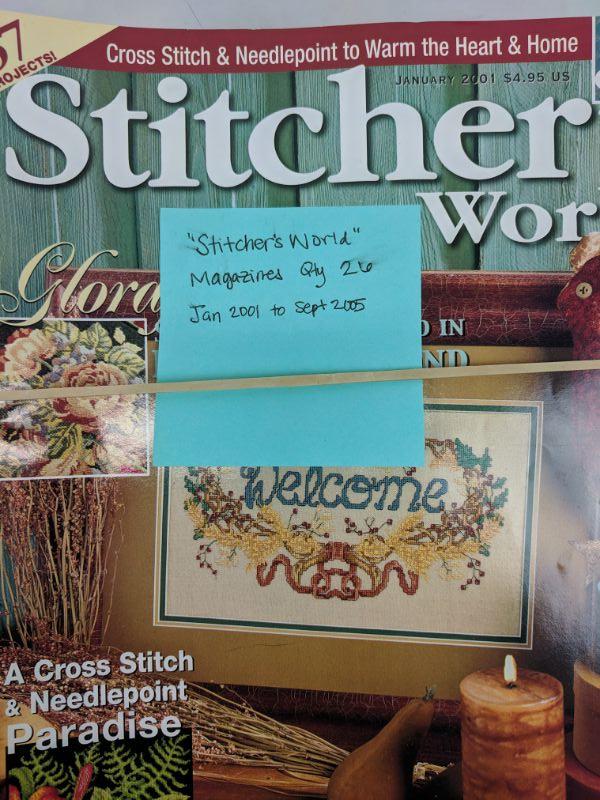 Cross Stitch & Needlepoint to Warm the Heart & Home
JANUARY 2001 $4.95 US
Stitcher'
Wor
"Stitcher's World"
Magazines Qty 26
Jan 2001 to Sept 2005
IN
Welcome
A Cross Stitch
& Needlepoint
Paradise